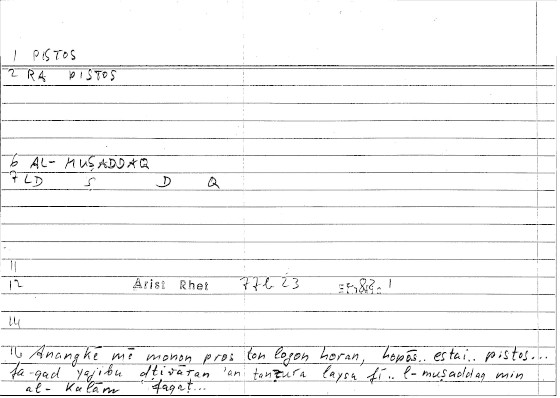 1 PISTOS
2 RA PISTOS
6 AL-MUṢADDAQ
7 LD Ṣ D Q
11
12 Arist Rhet 77b 23
14
16 Anangkē mē monon pros ton logon horan, hopōs.. estai.. pistos...
fa-qad yajibu ḍṭirāran 'an tanẓura laysa fī.. l-muṣaddaq min
al-Kalām faqaṭ...